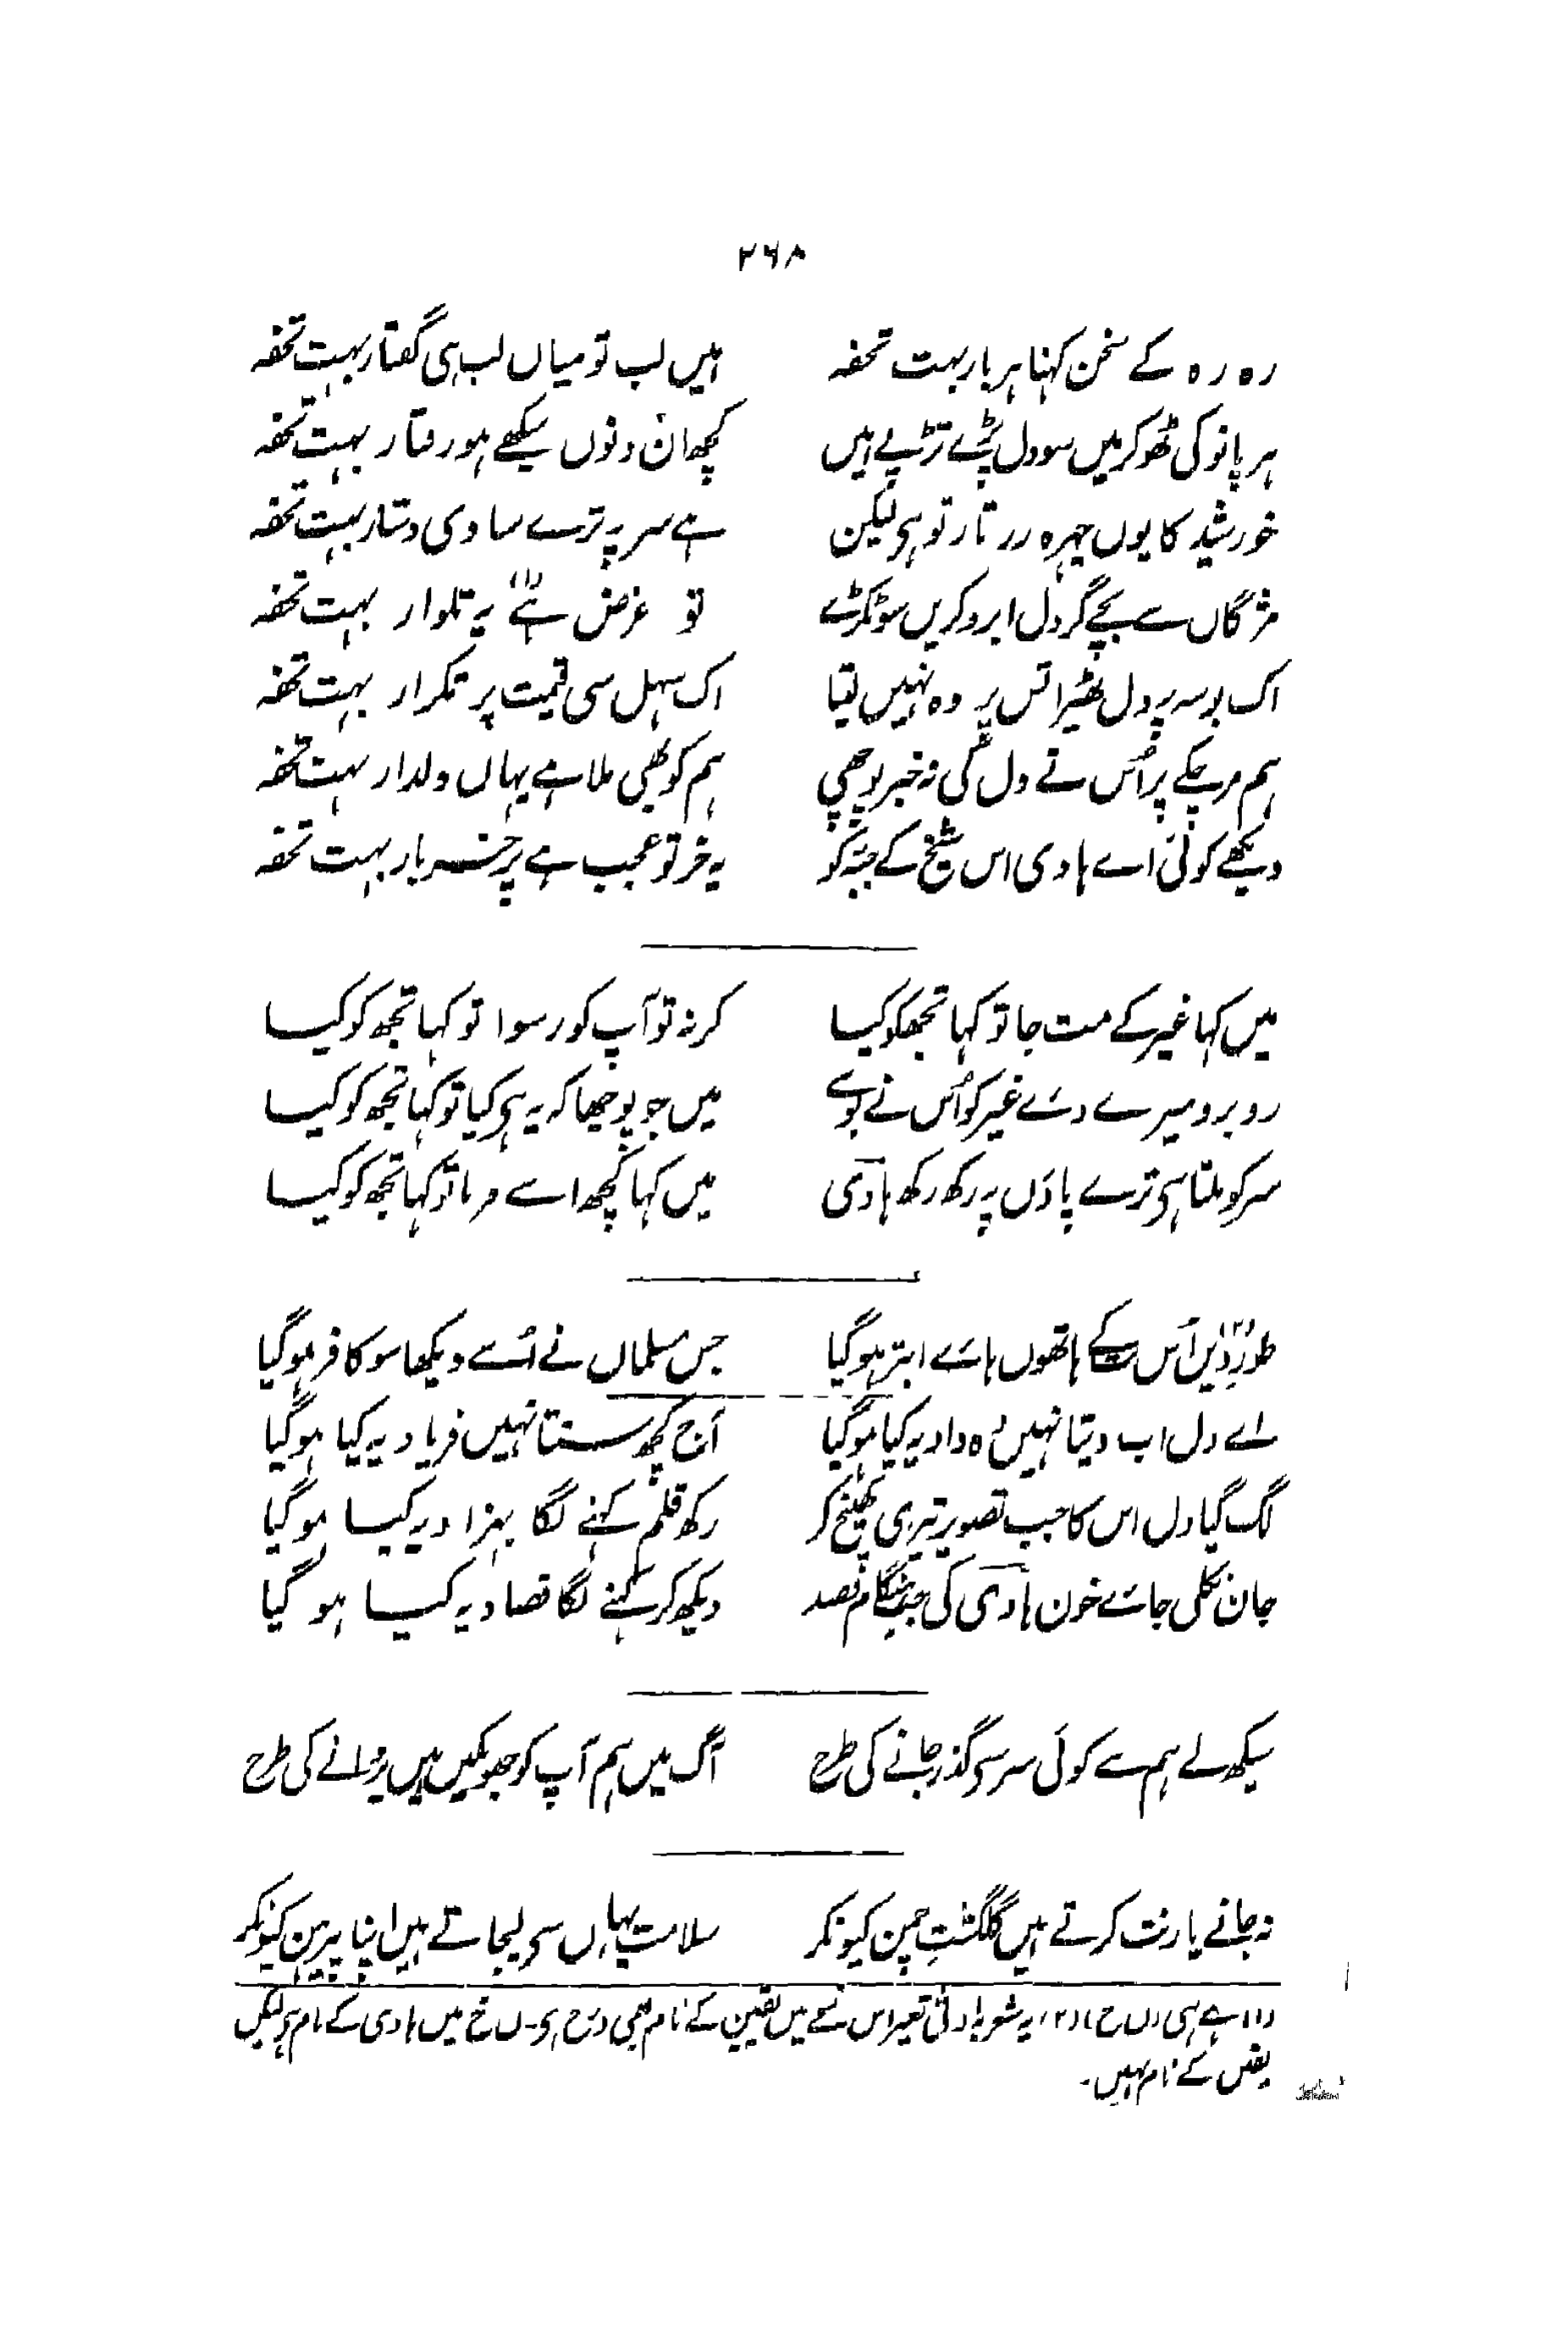 ۲۶۸
رہ رہ کے سخن کہنا ہر بار بہت تحفہ ہیں لب تو میاں لب ہی گفتار بہت تحفہ
ہر پانو کی ٹھوکر میں سو دل پڑے تڑپے ہیں کچھ ان دنوں سیکھے ہو رفتار بہت تحفہ
خورشید کا یوں چہرہ زر تار تو ہی لیکن ہے سر پہ ترے سادی دستار بہت تحفہ
مژگاں سے بچے گر دل ابرو کریں سو ٹکڑے تو غرض ہے (۱) یہ تلوار بہت تحفہ
اک بوسہ پر دل ٹھیرا تس پر وہ نہیں لیتا اک سہل سی قیمت پر تکرار بہت تحفہ
ہم مر چکے پر اُس نے دل کی نہ خبر پوچھی ہم کو بھی ملا ہے یہاں دلدار بہت تحفہ
دیکھے کوئی اے ہادی اس شیخ کے جبّہ کو یہ خر تو عجب ہے پر خر بار بہت تحفہ
میں کہا غیر کے مت جا تو کہا تجھکو کیا کر نہ تو آپ کو رسوا تو کہا تجھ کو کیا
روبرو میرے دئے غیر کو اُس نے بوسے میں جو پوچھا کہ یہ ہی کیا تو کہا تجھ کو کیا
سر کو ملتا ہی ترے پاؤں پہ رکھ رکھ ہادی میں کہا کچھ اسے فرما تو کہا تجھ کو کیا
طورِ دیں (۲) اُس کے ہاتھوں ہائے ابتر ہو گیا جس مسلماں نے اُسے دیکھا سو کافر ہو گیا
اے دل اب دیتا نہیں وہ داد یہ کیا ہو گیا آج کچھ سنتا نہیں فریاد یہ کیا ہو گیا
لگ گیا دل اس کا جب تصویر تیری کھینچ کر رکھ قلم کہنے لگا بہزاد یہ کیا ہو گیا
جان نکلی جائے خون ہادی کی جب ہنگام فصد دیکھ کر کہنے لگا فصاد یہ کیا ہو گیا
سیکھ لے ہم سے کوئی سر سی گذر جانے کی طرح آگ میں ہم آپ کو جھونکیں ہیں پروانے کی طرح
نہ جانے یار نت کرتے ہیں گلگشتِ چمن کیونکر سلامت یہاں سی لیجاتے ہیں اپنا پیرہن کیونکر
(۱) ہے ہی (ل ح) (۲) یہ شعر بادنیٰ تغیر اس نسخے میں یقین کے نام بھی درج ہی۔ ل خ میں ہادی کے نام ہی لیکن
یقین کے نام نہیں۔